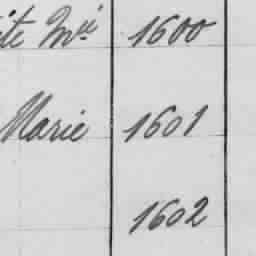 ite Mie 1600
Marie 1601
1602